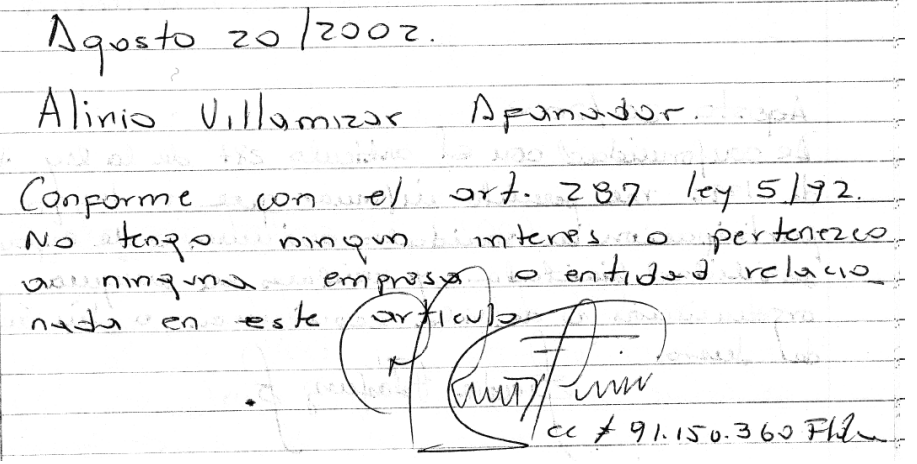 Agosto 20/2002.
Alinio Villamizar Afanador.
Conforme con el art. 287 ley 5/92.
No tengo ningun interes o pertenezco
a ninguna empresa o entidad relacio
nada en este articulo
cc # 91.150.360 F/B